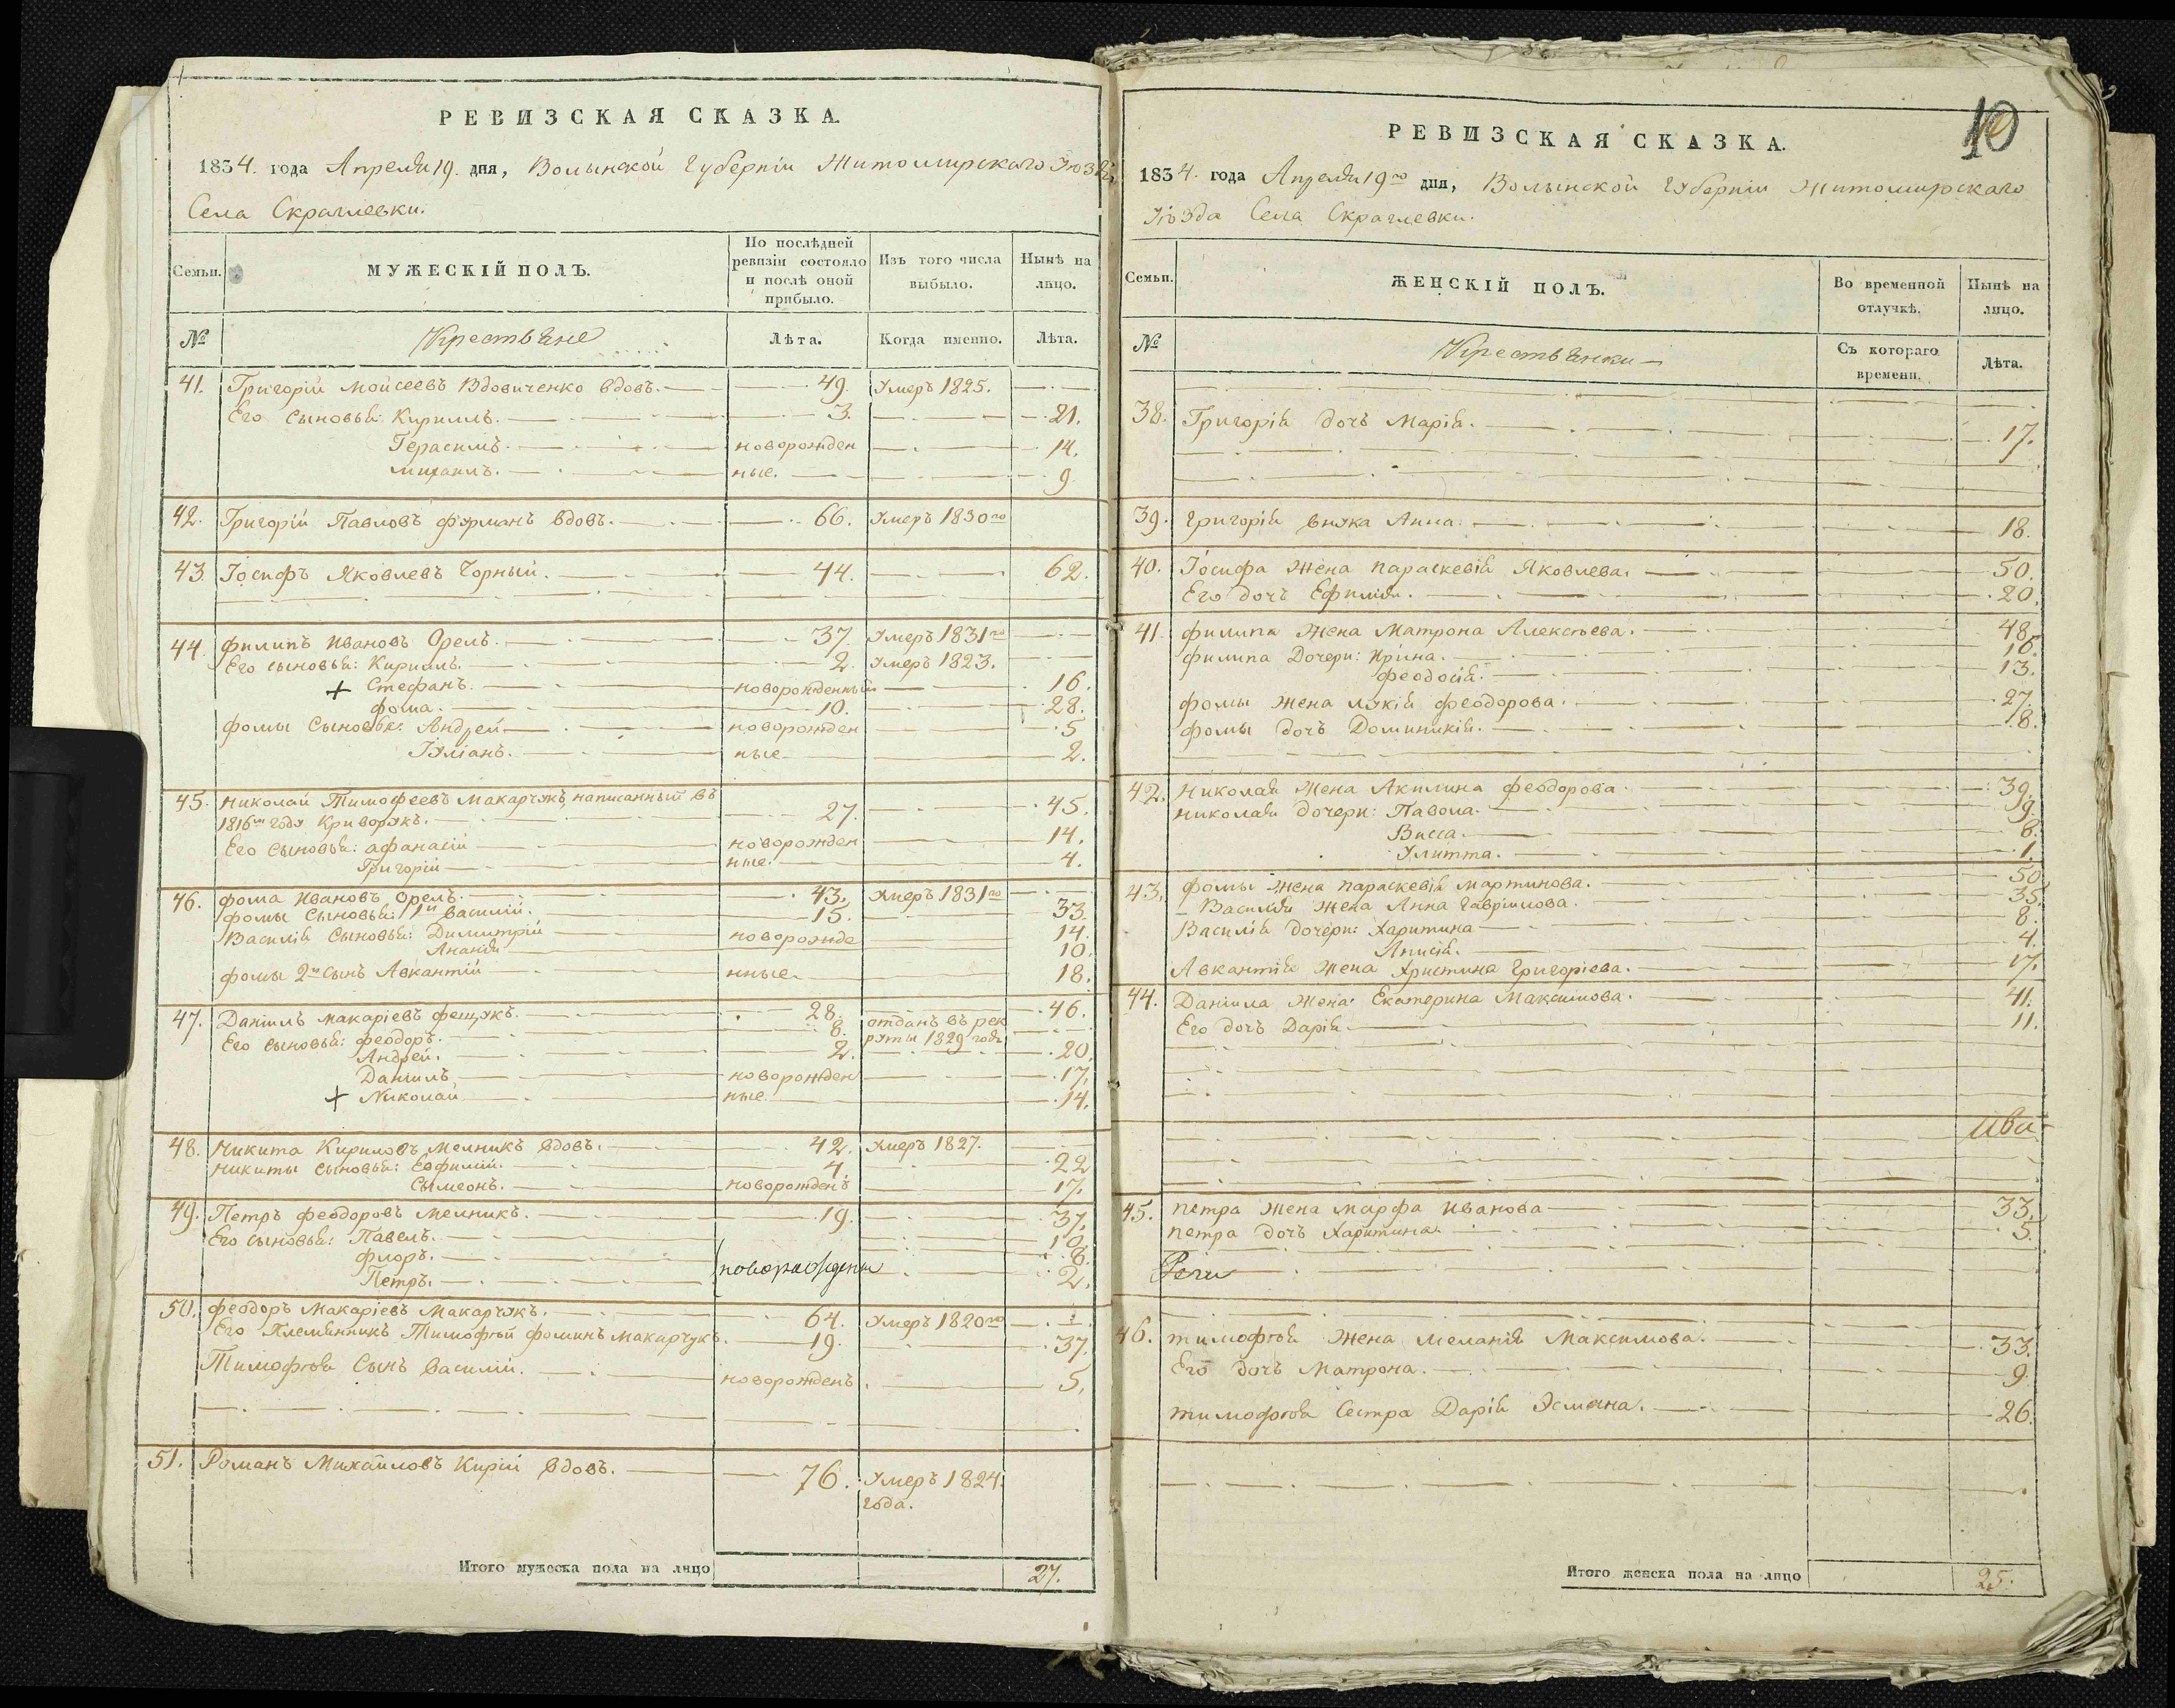 РЕВИЗСКАЯ СКАЗКА.
1834. года Апреля 19. дня, Волынской Губерніи Житомирского
Села Скраглевки.
Семьи.
МУЖЕСКІЙ ПОЛЪ.
По послѣдней ревизіи состояло и послѣ оной прибыло.
Изъ того числа выбыло.
Нынѣ на лицо.
№ Крестьяне Лѣта. Когда именно. Лѣта.
41. Григорій Моисеевъ Вдовиченко вдовъ. 49. Умеръ 1825.
Его Сыновья: Кириллъ. 3. 21.
Герасимъ. новорожден 14.
Михаилъ. ные. 9
42. Григорій Павловъ Фурманъ вдовъ. 66. Умеръ 1830го
43. Іосифъ Яковлевъ Чорный. 44. 62.
44. Филипъ Ивановъ Орелъ. 37. Умеръ 1831го
Его сыновья: Кириллъ. 2. Умеръ 1823.
+ Стефанъ. новорожденный 16.
Фома. 10. 28.
Фомы Сыновья: Андрей новорожден 5
Іуліанъ. ные 2.
45. Николай Тимофеевъ Макарчукъ, написанный въ
1816м году Криворукъ. 27. 45.
Его Сыновья: Афанасій новорожден 14.
Григорій ные. 4.
46. Фома Ивановъ Орелъ. 43. Умеръ 1831го
Фомы Сыновья: 1й Василій. 15. 33.
Василія Сыновья: Димитрій новорожде 14.
Ананія 10.
Фомы 2й Сынъ Авкантій нные. 18.
47. Даніилъ Макаріевъ Фещукъ. 28. 46.
Его Сыновья: Феодоръ. 8. отданъ въ рек
руты 1829 года
Андрей. 2. 20.
Даніилъ новорожден 17.
+ Николай ные 14.
48. Никита Кириловъ Мелникъ вдовъ. 42. Умеръ 1827.
Никиты Сыновья: Евфимій. 4. 22
Сымеонъ. новорожденъ 17.
49. Петръ Феодоровъ Мелникъ. 19. 37.
Его Сыновья: Павелъ. 10.
Флоръ. 8.
Петръ. новорождены 2.
50. Феодоръ Макаріевъ Макарчукъ. 64. Умеръ 1820го
Его Племянникъ Тимофѣй Фоминъ Макарчукъ. 19. 37.
Тимофѣя Сынъ Василій. новорожденъ 5.
51. Романъ Михайловъ Кирій вдовъ. 76. Умеръ 1824.
года.
Итого мужеска пола на лицо 27.
10
РЕВИЗСКАЯ СКАЗКА.
1834. года Апреля 19го дня, Волынской Губерніи Житомирскаго
Уѣзда Села Скраглевки.
Семьи.
ЖЕНСКІЙ ПОЛЪ.
Во временной отлучкѣ.
Нынѣ на лицо.
№ Крестьянки Съ котораго времени. Лѣта.
38. Григорія дочь Марія. 17.
39. Григорія внука Анна. 18.
40. Іосифа жена Параскевія Яковлева. 50.
Его дочь Ефимія. 20.
41. Филипа жена Матрона Алексѣева. 48.
Филипа Дочери: Ирина. 16.
Феодосія. 13.
Фомы жена Лукія Феодорова. 27.
Фомы дочь Доминикія. 8.
42. Николая жена Акилина Феодорова. 39.
Николая дочери: Павола. 9.
Васса. 6.
Улитта. 1.
43. Фомы жена Параскевія Мартинова. 50
Василія жена Анна Гавріилова. 35.
Василія дочери: Харитина 8.
Анисія. 4.
Авкантія жена Христина Григоріева. 17.
44. Даніила жена: Екатерина Максимова. 41.
Его дочь Дарія 11.
45. Петра жена Марфа Иванова 33.
Петра дочь Харитина. 5.
46. Тимофѣя жена Меланія Максимова. 33.
Его дочь Матрона. 9.
Тимофѣя Сестра Дарія 26.
Итого женска пола на лицо 25.